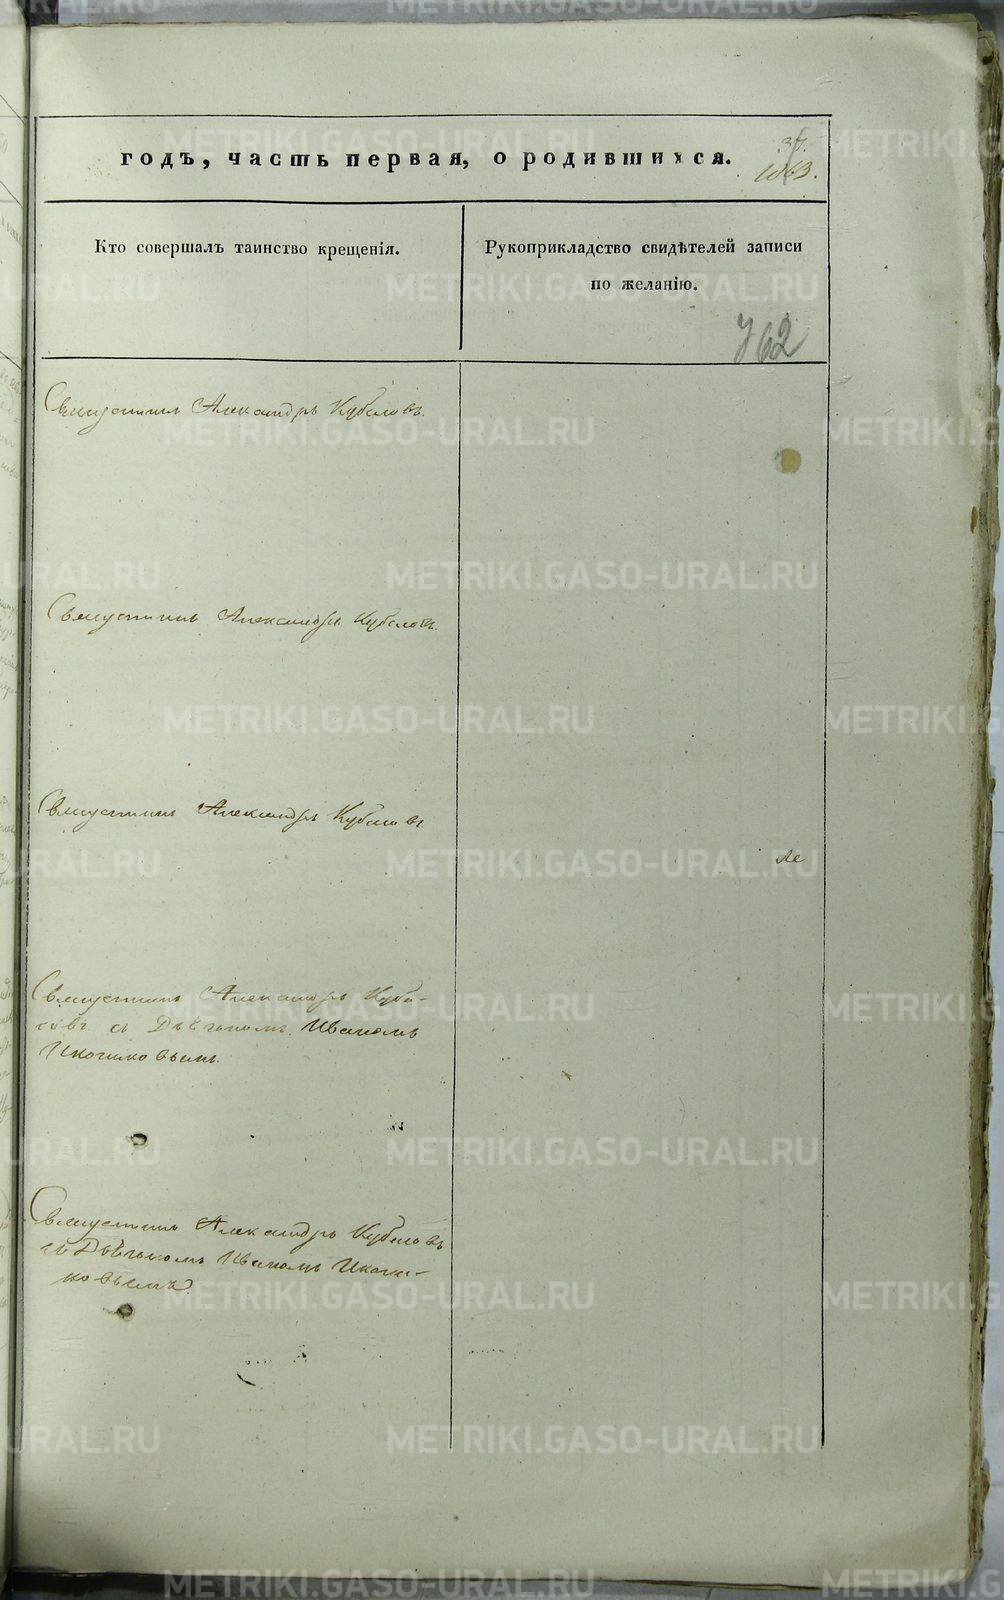 годъ, часть первая, о родившихся.
37.
1063.
Кто совершалъ таинство крещенія.
Рукоприкладство свидѣтелей записи
по желанію.
762
Священникъ Александръ Кубасовъ.
Священникъ Александръ Кубасовъ.
Священникъ Александръ Кубасовъ.
Священникъ Александръ Куба-
совъ съ Дьячкомъ Иваномъ
Священникъ Александръ Кубасовъ
съ Дьячкомъ Иваномъ
METRIKI.GASO-URAL.RU